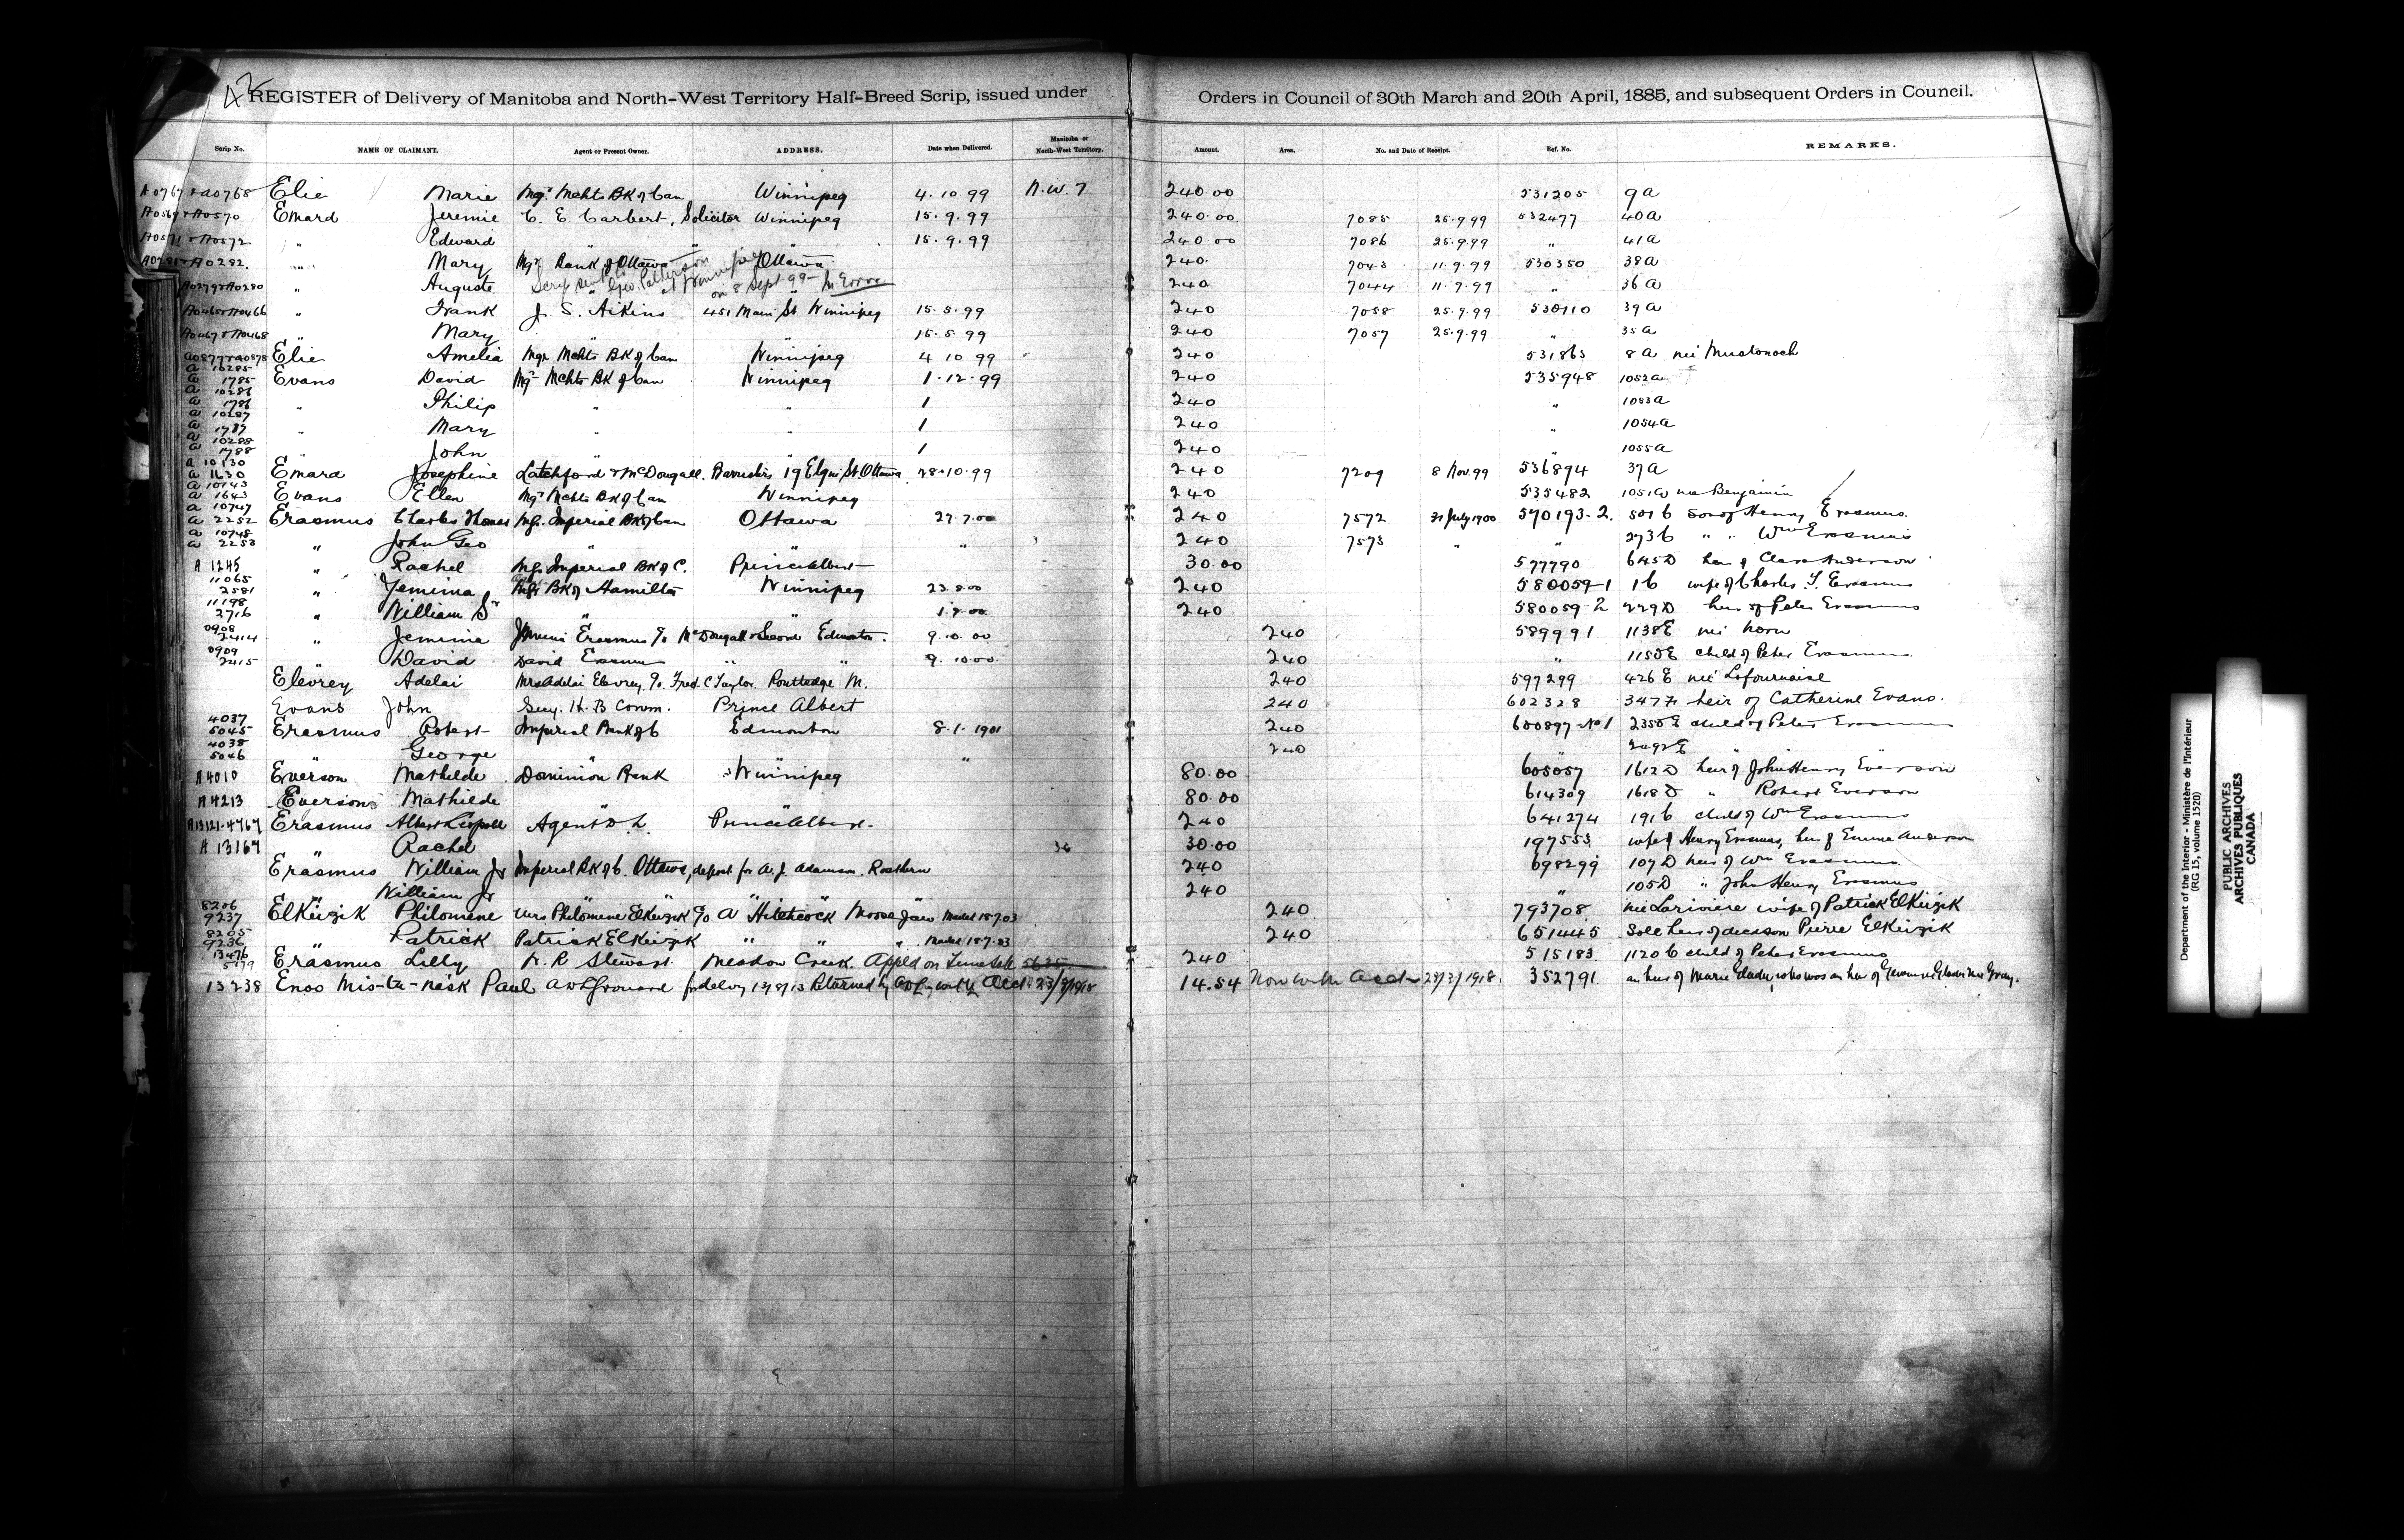 42
REGISTER of Delivery of Manitoba and North-West Territory Half-Breed Scrip, issued under Orders in Council of 30th March and 20th April, 1885, and subsequent Orders in Council.
Scrip No. NAME OF CLAIMANT. Agent or Present Owner. ADDRESS. Date when Delivered. Manitoba or North-West Territory. Amount. Area. No. and Date of Receipt. Ref. No. REMARKS.
A0767 & A0768 Elie Marie Mgr Mchts BK of Can Winnipeg 4.10.99 N.W.T 240.00 531205 9A
A0569 & A0570 Emard Jeremie C. E. Carbert, Solicitor Winnipeg 15.9.99 240.00 7085 25.9.99 532477 40A
A0571 & A0572 " Edward " " 15.9.99 240.00 7086 25.9.99 " 41A
A0281 & A0282 " Mary Mgr Bank of Ottawa Ottawa 240. 7043 11.9.99 530350 38A
Scrip sent to Geo. Patterson at Winnipeg on 8 Sept 99 in Error
A0279 & A0280 " Auguste " " 240 7044 11.9.99 " 36A
A0465 & A0466 " Frank J. S. Aikins 451 Main St Winnipeg 15.5.99 240 7058 25.9.99 530110 39A
A0467 & A0468 " Mary " " 15.5.99 240 7057 25.9.99 " 35A
A0877 & A0878 Elie Amelia Mgr Mchts BK of Can Winnipeg 4 10 99 240 531863 8A née
A 10285
A 1785 Evans David Mgr Mchts BK of Can Winnipeg 1.12.99 240 535948 1052A
A 10286
A 1786 " Philip " " 1 240 " 1053A
A 10287
A 1787 " Mary " " 1 240 " 1054A
A 10288
A 1788 " John 1 240 " 1055A
A 10130
A 1630 Emard Josephine Latchford & McDougall. Barristers 19 Elgin St. Ottawa. 28.10.99 240 7209 8 Nov. 99 536894 37A
A 10143
A 1643 Evans Ellen Mgr Mchts BK of Can Winnipeg 240 535482 1051A née Benjamin
A 10747
A 2252 Erasmus Charles Thomas Mgr. Imperial BK of Can Ottawa 27.7.00 240 7572 31 July 1900 570193-2. 501 b son of Henry Erasmus.
A 10748
A 2253 " John Geo " " " 240 7573 " " 273 b " " Wm Erasmus
A 1245 " Rachel Mgr Imperial BK of C. Prince Albert 30.00 577790 645D heir of Clara Anderson
11065
2581 " Jemima Mgr BK of Hamilton Winnipeg 23.8.00 240 580059-1 1 b wife of Charles T. Erasmus
11198
2716 " William Sr " " 1.9.00 240 580059-2 229D heir of Peter Erasmus
0908
2414 " Jemima Jemima Erasmus c/o McDougall & Secord Edmonton 9.10.00 240 589991 1138E née
0909
2415 " David David Erasmus " " 9.10.00 240 " 1150E child of Peter Erasmus
Elevrey Adelai Mrs Adelai Elevrey c/o Fred. C Taylor. Routledge M. 240 597299 426 E née Lafournaise
Evans John Secy. H. B Comm. Prince Albert 240 602328 347 heir of Catherine Evans.
4037
5045 Erasmus Robert Imperial Bank of C Edmonton 8.1.1901 240 600897-No 1 2350 E child of Peter Erasmus
4038
5046 " George " " " 240 " 2492 E "
A 4010 Everson Mathilde Dominion Bank Winnipeg 80.00 605057 1612 D heir of John Henry Everson
A 4213 Everson Mathilde " " 80.00 614309 1618 D " Robert Everson
A 13121-4767 Erasmus Albert Leopold Agent D. L. Prince Albert 240 641274 191 b child of Wm Erasmus
A 13167 " Rachel 30.00 197553 wife of Henry Erasmus, heir of Emma Anderson
Erasmus William Jr Imperial BK of C. Ottawa, deposit for A. J. Adamson. Rosthern 240 698299 107 D heir of Wm Erasmus
" William Jr 240 " 105 D " John Henry Erasmus
8206
9237 ElKeizik Philomene Mrs Philomene ElKeizik c/o A Hitchcock Moose Jaw Mailed 18.7.03 240 793708 née Lariviere wife of Patrick ElKeizik
8205
9236 " Patrick Patrick ElKeizik " " " Mailed 18.7.03 240 651445 Sole heir of dec'd son Pierre ElKeizik
13476
5179 Erasmus Lilly N. R Stewart Meadow Creek. App'd on Timesale 5635 240 515183 1120 b child of Peter Erasmus
13238 Enoo Mis-ta-nask Paul for delvy 13/8/13 Returned by 23/3/1918 14.54 Now with Acct 23/3/1918. 352791. an heir of Marie Gladu, who was an heir of Genevieve Gladu née Gray.
Department of the Interior - Ministère de l'Intérieur
(RG 15, volume 1520)
PUBLIC ARCHIVES
ARCHIVES PUBLIQUES
CANADA